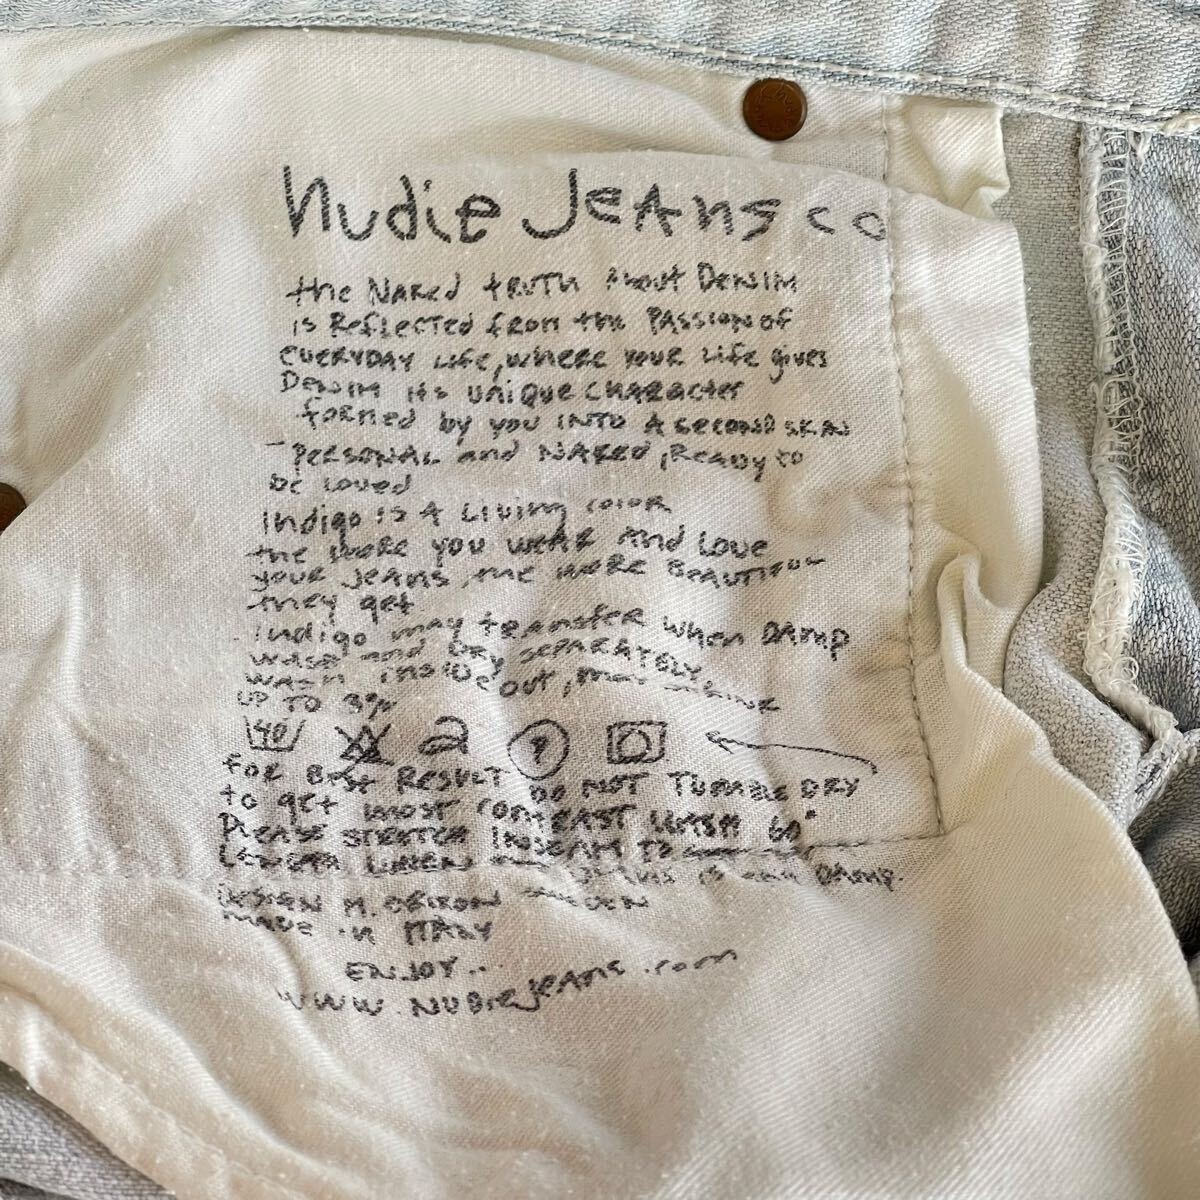 Nudie Jeans co
the Naked truth About Denim
is Reflected from the Passion of
everyday life, where your life gives
Denim its unique character
formed by you into a second skin
- personal and naked, ready to
be loved
Indigo is a living color
the more you wear and love
your jeans, the more beautiful
they get.
Indigo may transfer when damp
wash and dry separately,
wash inside out, may shrink
up to 3%
40
P
for best result do not tumble dry
to get most contrast wash 60°
Please stretch inseam to
length when jeans is damp.
Design M. Erixon Sweden
made in Italy
Enjoy..
www.nudiejeans.com